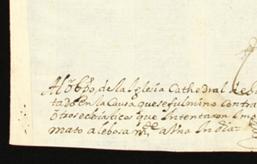 Al obpo, de la Iglesia Cathedral de
tado en la Causa que se fulmino contra
otros echiasticos que Intentaron
mato alebosa mte a Una India